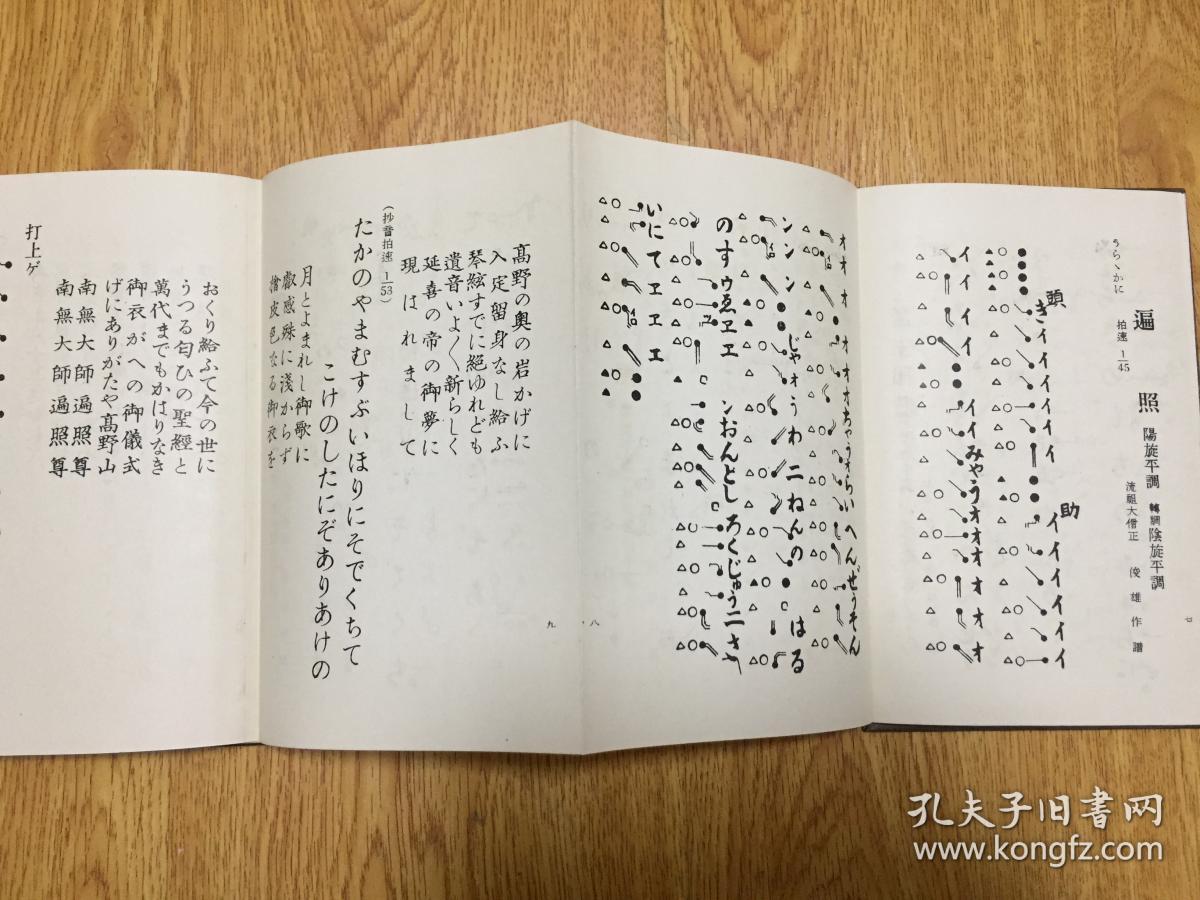 うらゝかに
拍速 1/45
遍照 陽旋平調 轉調陰旋平調
流祖大僧正 俊雄作譜
七
頭 助
きイイイイイイ イイイイイイイ
イイイイイ イイみやうオオオオオオ
オオオ オオオオあやうオらいへんぜうそん
ンンン じやオうわ 二ねんの はる
のすウゑヱヱ ンおんとしろくじゆう二さい
いにてヱヱヱ
八
九
高野の奧の岩かげに
入定留身なし給ふ
琴絃すでに絶ゆれども
遺音いよ〱新らしく
延喜の帝の御夢に
現はれまして
(抄音拍速 1/53)
たかのやまむすぶいほりにそでくちて
こけのしたにぞありあけの
月とよまれし御歌に
叡感殊に淺からず
檜皮色なる御衣を
おくり給ふて今の世に
うつる匂ひの聖經と
萬代までもかはりなき
御衣がへの御儀式
げにありがたや髙野山
南無大師遍照尊
南無大師遍照尊
打上ゲ
孔夫子旧书网
www.kongfz.com